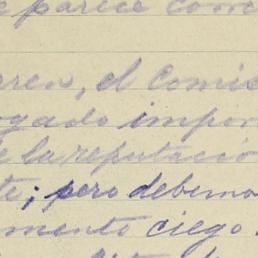 e parece como
aren, el Comis
ogado impor
e la reputació
te; pero debemo
mento ciego